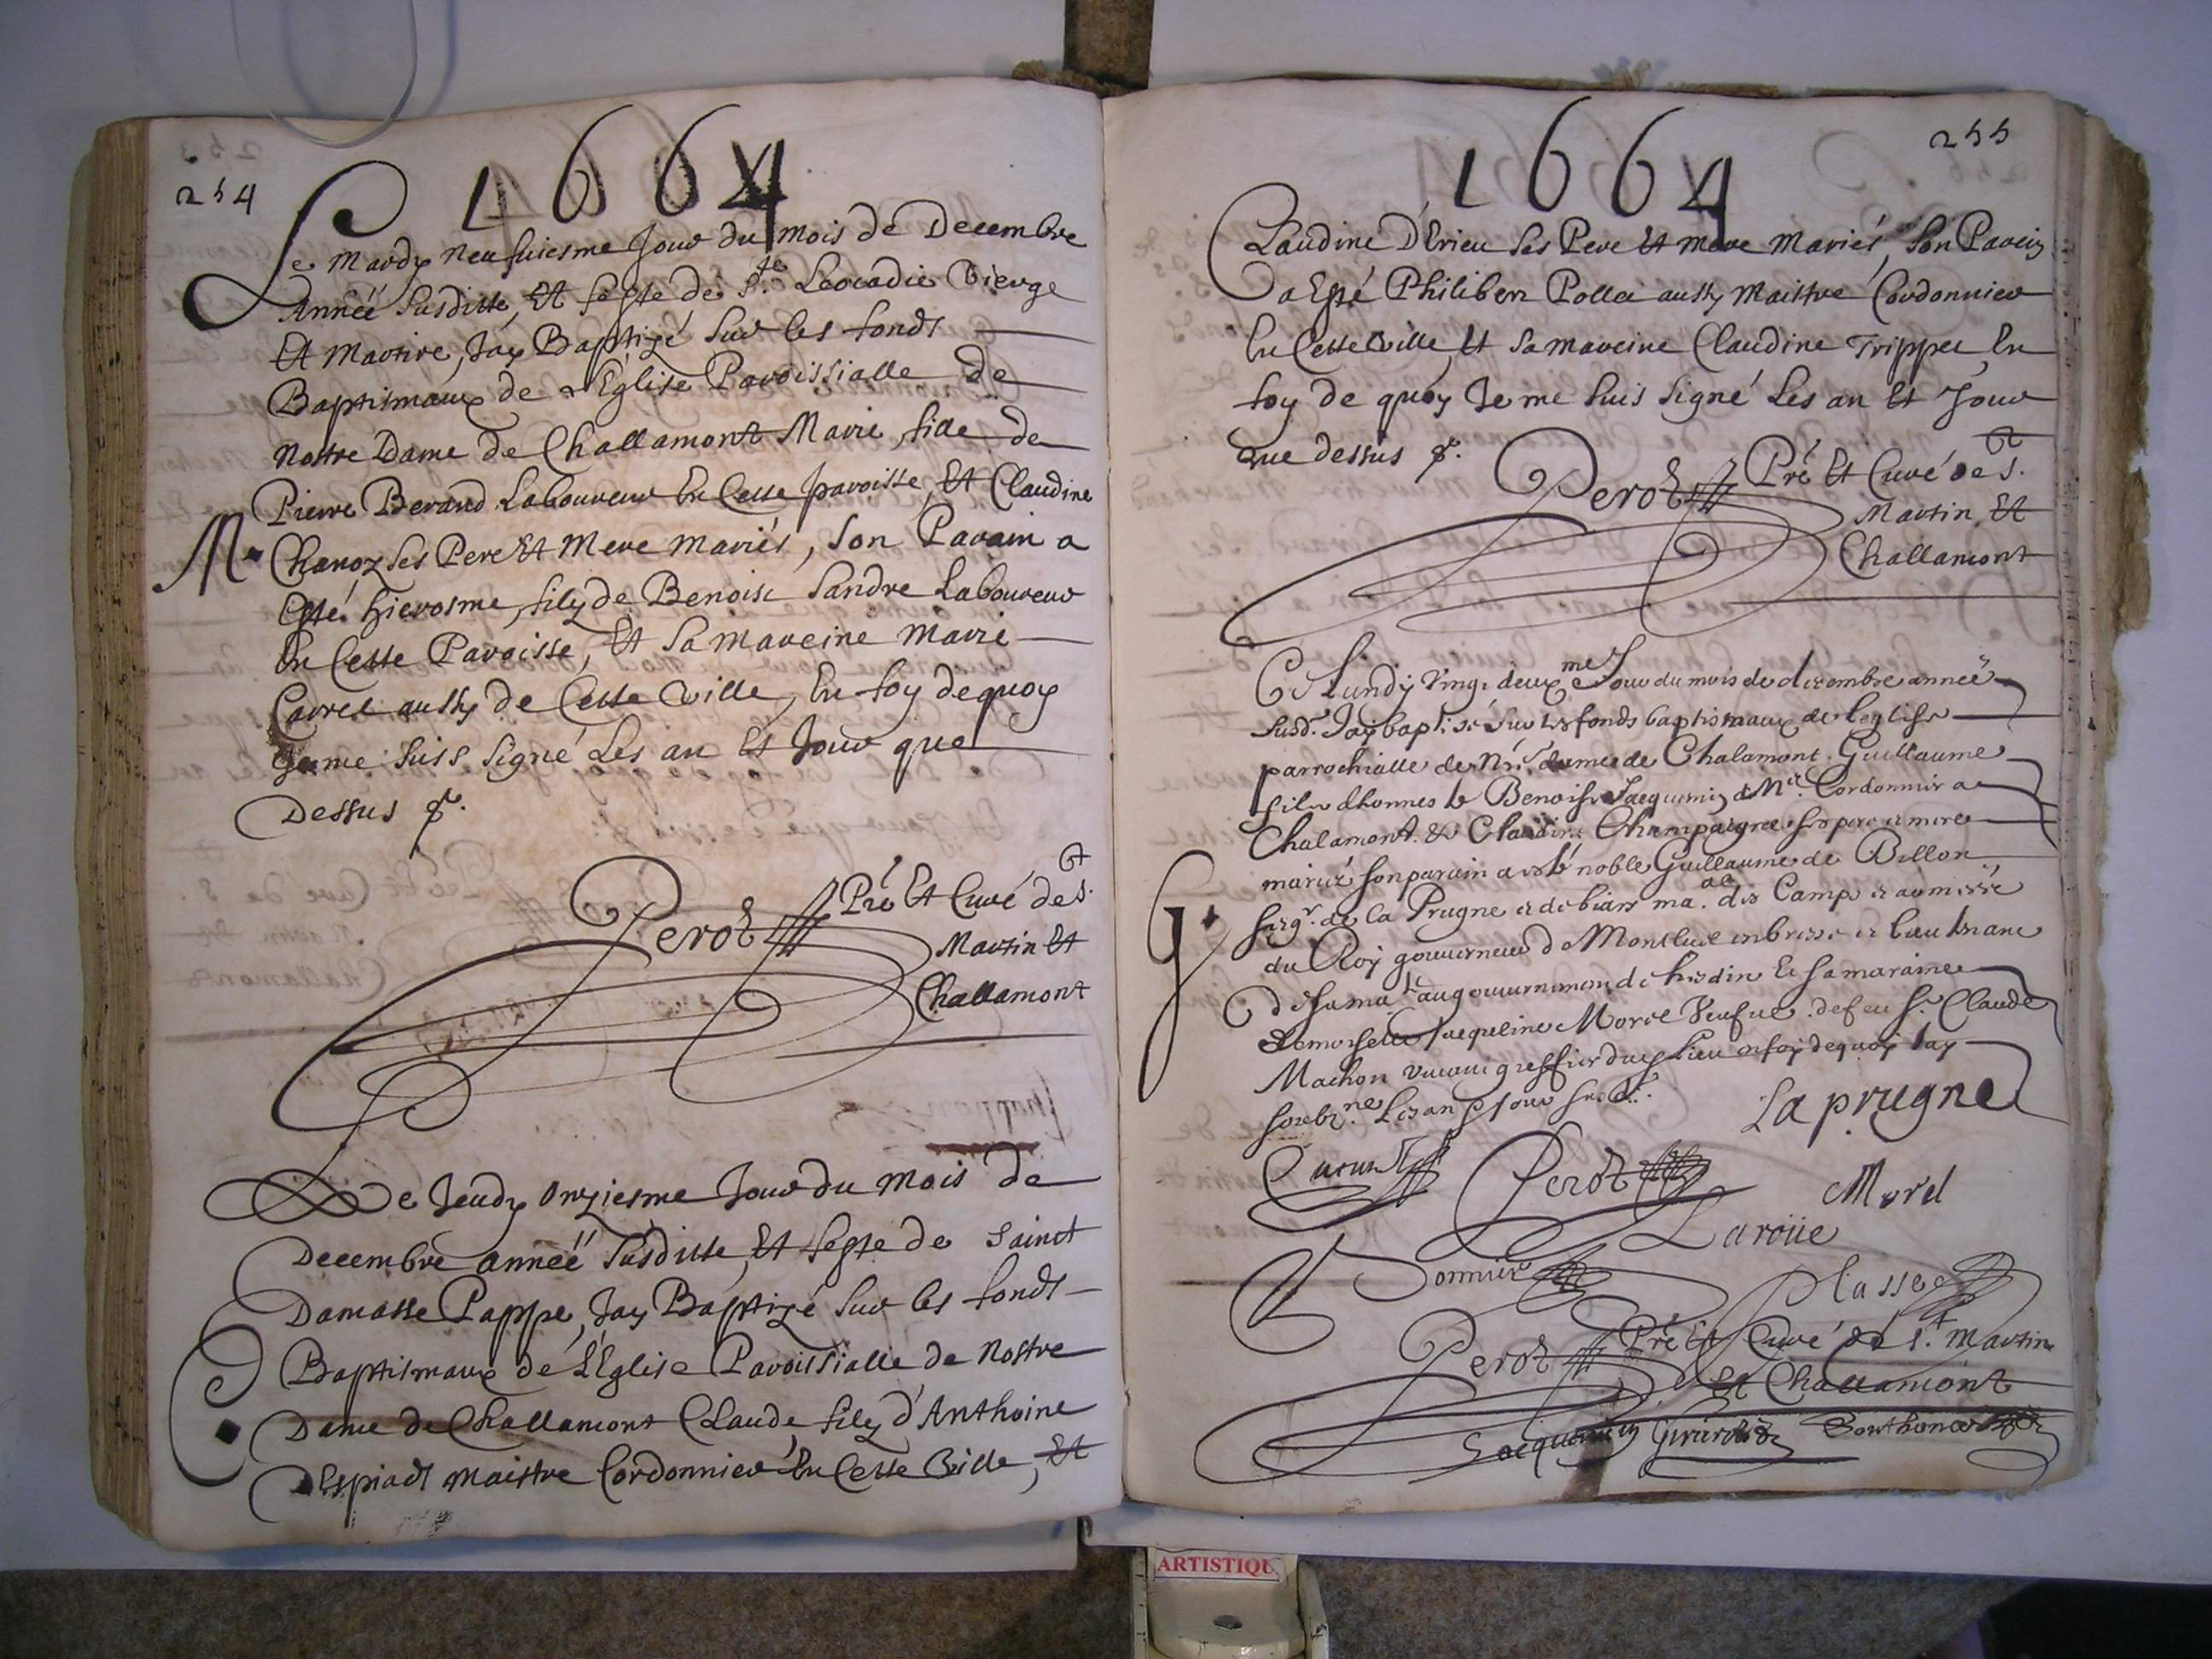 254
1664
Le Mardy neufuiesme Jour du mois de Decembre
Année susditte, Et feste de Ste Leocadie Vierge
Et Martire, Jay Baptizé sur les fonds
Baptismaux de l'Eglise Paroissialle de
Nostre Dame de Challamont Marie fille de
Pierre Berand Laboureur En Cette paroisse, Et Claudine
M Chanoz ses Pere Et Mere mariés, son Parain a
Esté Hierosme, filz de Benoist Sandre Laboureur
En Cette Paroisse, Et sa mareine Marie
Carret aussy de Cette Ville, En foy de quoy
Je me suis signé Les an Et Jour que
Dessus
Perot Pre Et Curé de St
Martin Et
Challamont
Le Jeudy Onziesme Jour du mois de
Decembre année susditte, Et feste de sainct
Damasse Pappe, Jay Baptizé sur les fonds
Baptismaux de L'Eglise Paroissialle de Nostre
C Dame de Challamont Claude, filz d'Anthoine
Espiadt maistre Cordonnier En Cette Ville, Et
255
1664
Claudine D'Erieu ses Pere Et mere mariés, son Parein
a Esté Philibert Pollet aussy Maistre Cordonnier
En Cette Ville, Et sa mareine Claudine Trippet En
foy de quoy Je me suis signé Les an Et Jour
que dessus
Perot Pre Et Curé de St
Martin Et
Challamont
Ce Lundy vingt deuxme Jour du mois de decembre année
susd. Jay baptisé sur les fonds baptismaux de leglise
parrochialle de Nre dame de Chalamont Guillaume
fils dhonneste Benoist Jacquemin Me Cordonnier a
Chalamont & Claudine Champaigne ses pere et mere
mariez son parain a esté noble Guillaume de Billon
G seigr. de la Prugne et de biars mal des Camps et armées
du Roy gouverneur de Montluel en bresse et lieutenant
de sa mate au gouvernement de hesdin Et sa maraine
demoiselle Jacqueline Morel veufue de feu Sr. Claude
Machon vivant greffier dud lieu en foy de quoy Jay
soubzne Les an & Jour susd.
Laprugne
Perot
Morel
Laroüe
Bonnier
Plasse
Perot Pre Et Curé de St. Martin
Et Challamont
Jacquemin Girard